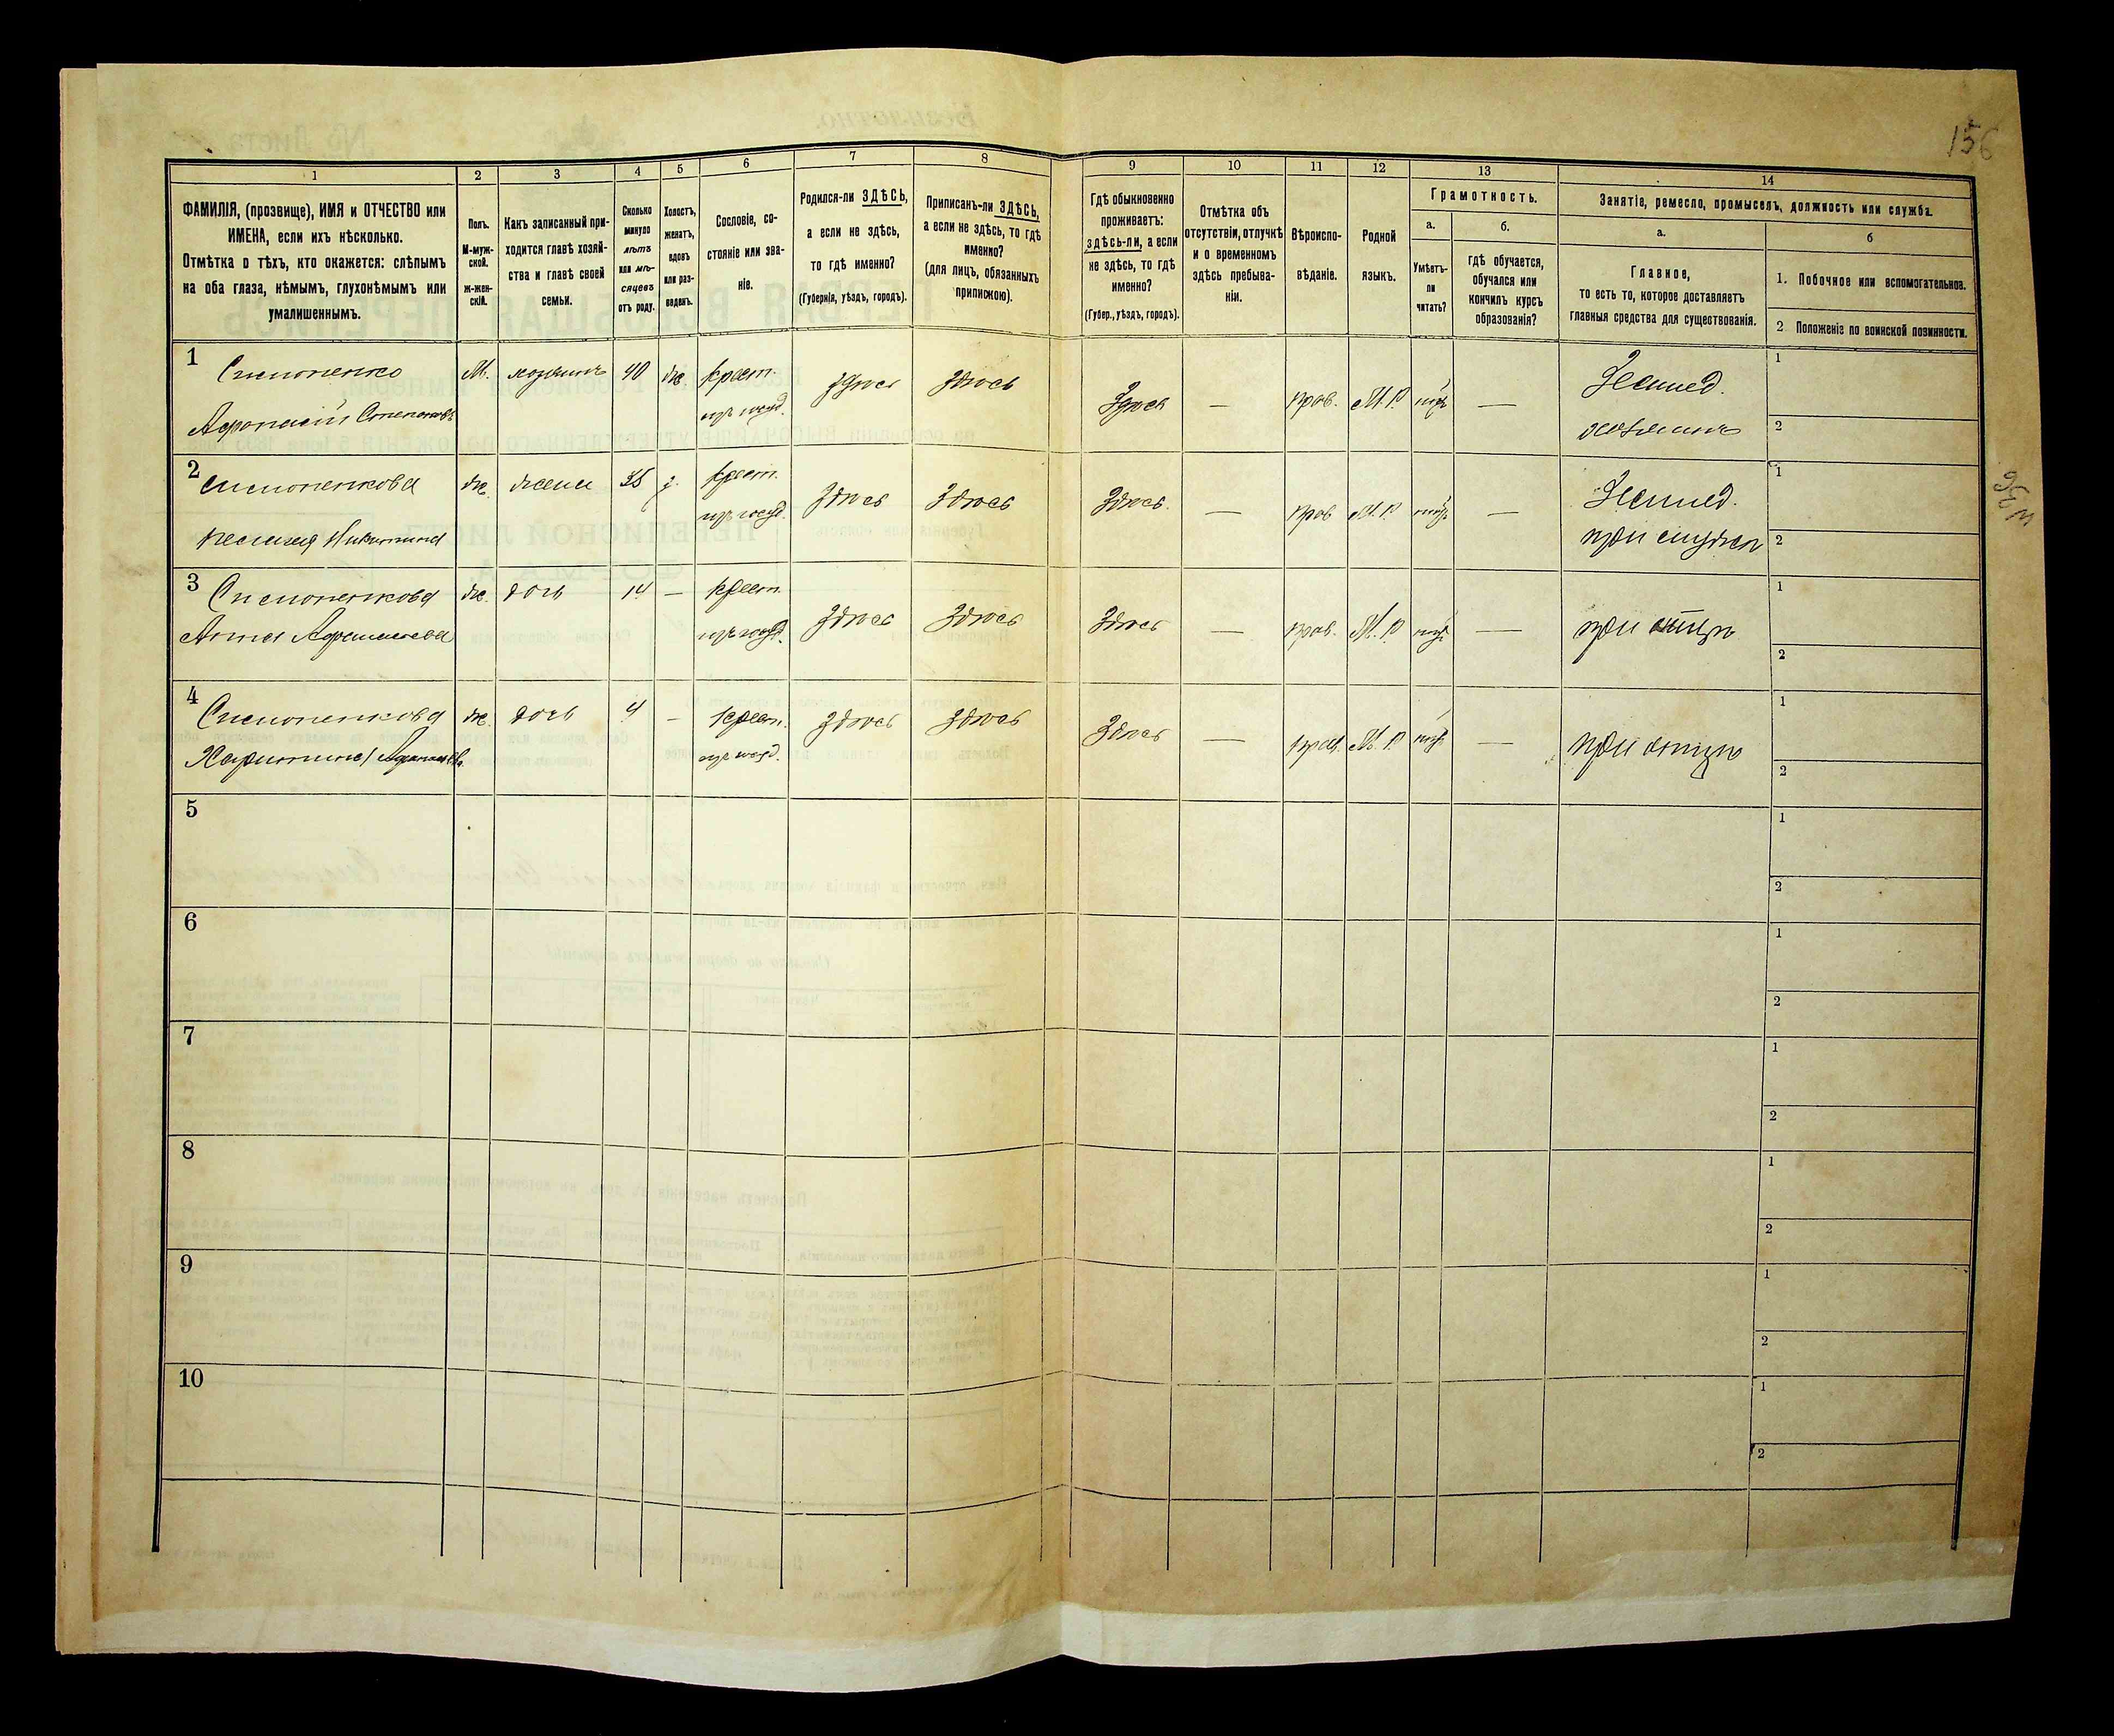 156
1 2 3 4 5 6 7 8 9 10 11 12 13 14
ФАМИЛІЯ, (прозвище), ИМЯ и ОТЧЕСТВО или
ИМЕНА, если ихъ нѣсколько.
Отмѣтка о тѣхъ, кто окажется: слѣпымъ
на оба глаза, нѣмымъ, глухонѣмымъ или
умалишеннымъ.
Полъ.
М-муж-
ской.
ж-жен-
скій.
Какъ записанный при-
ходится главѣ хозяй-
ства и главѣ своей
семьи.
Сколько
минуло
лѣтъ
или мѣ-
сяцевъ
отъ роду.
Холостъ,
женатъ,
вдовъ
или раз-
веденъ.
Сословіе, со-
стояніе или зва-
ніе.
Родился-ли ЗДѢСЬ,
а если не здѣсь,
то гдѣ именно?
(Губернія, уѣздъ, городъ).
Приписанъ-ли ЗДѢСЬ,
а если не здѣсь, то гдѣ
именно?
(для лицъ, обязанныхъ
припискою).
Гдѣ обыкновенно
проживаетъ:
здѣсь-ли, а если
не здѣсь, то гдѣ
именно?
(Губер., уѣздъ, городъ).
Отмѣтка объ
отсутствіи, отлучкѣ
и о временномъ
здѣсь пребыва-
ніи.
Вѣроиспо-
вѣданіе.
Родной
языкъ.
Грамотность.
а.
Умѣетъ-
ли
читать?
б.
гдѣ обучается,
обучался или
кончилъ курсъ
образованія?
Занятіе, ремесло, промыселъ, должность или служба.
а.
Главное,
то есть то, которое доставляетъ
главныя средства для существованія.
б
1. Побочное или вспомогательное.
2 Положеніе по воинской повинности.
1 Симоненко М. хозяинъ 40 ж. крест. здѣсь здѣсь Здѣсь — прав. М. Р нѣтъ — Землед. 1
Афанасій Степановъ изъ госуд. хозяинъ 2
2 Симоненкова ж. жена 35 з. крест. Здѣсь Здѣсь Здѣсь. — прав М. Р нѣтъ — Землед. 1
Никитина изъ госуд. при мужѣ 2
3 Симоненкова ж. дочь 14 — крест. Здѣсь Здѣсь Здѣсь — прав. М. Р нѣтъ — при отцѣ 1
Анна Афанасьева изъ госуд. 2
4 Симоненкова ж. дочь 4 — крест. Здѣсь Здѣсь Здѣсь — прав. М. Р нѣтъ — при отцѣ 1
Харитина Афанасьева изъ госуд. 2
5 1
2
6 1
2
7 1
2
8 1
2
9 1
2
10 1
2